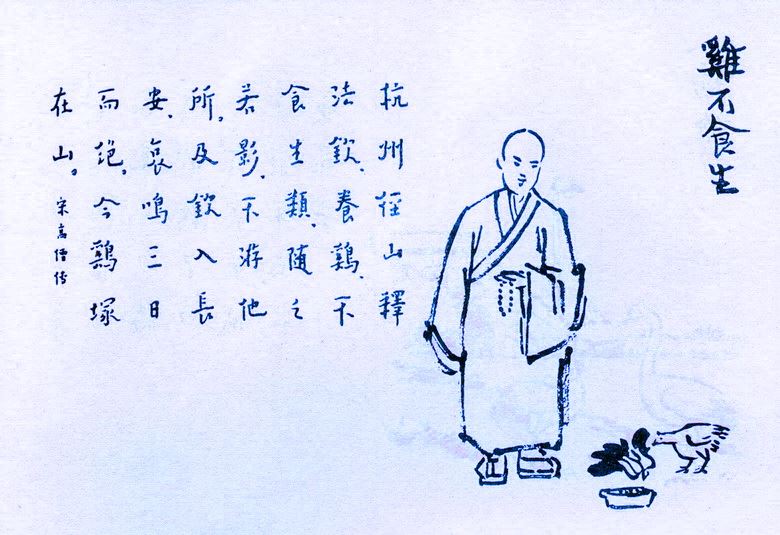 雞不食生
杭州徑山釋
法欽、養鷄、不
食生類、隨之
若影、不游他
所。及欽入長
安、哀鳴三日
而絕。今鷄塚
在山。宋高僧传